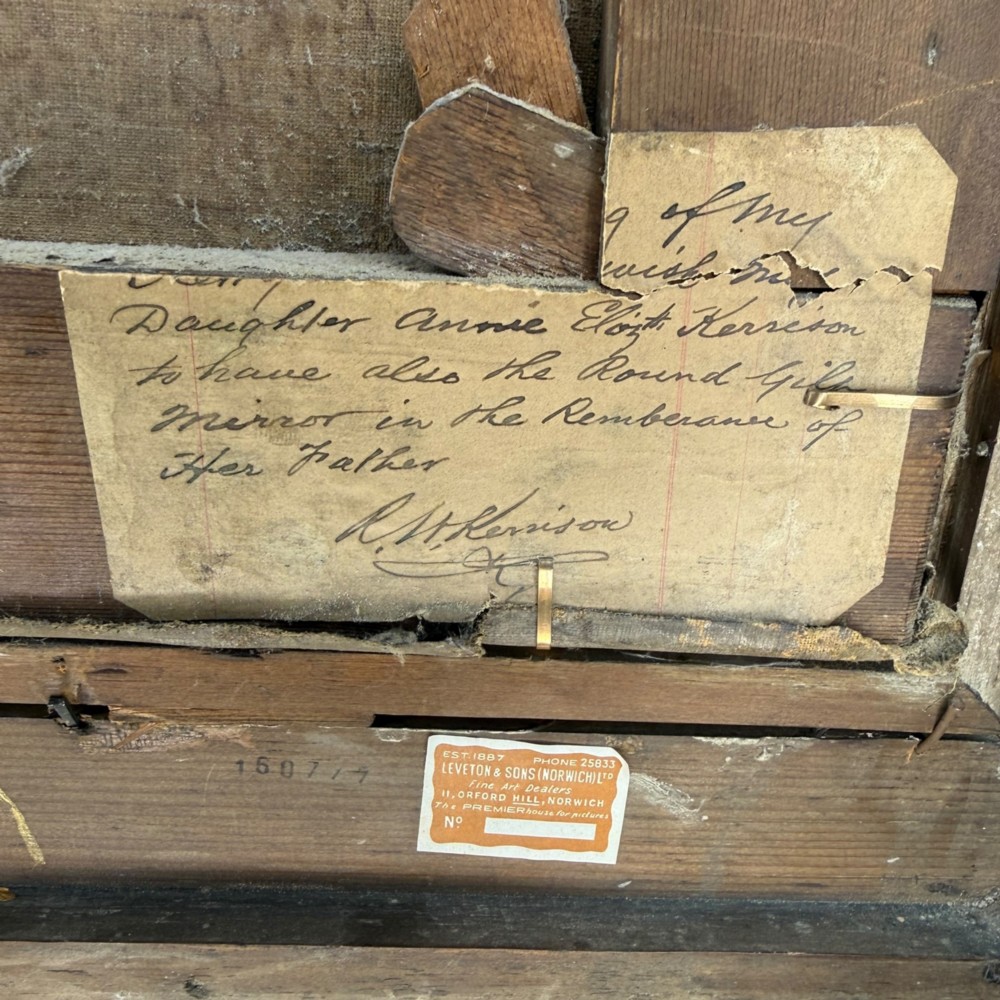 of my
wish my
Daughter Annie Elizth Kerrison
to have also the Round Gilt
Mirror in the Remberance of
Her Father
R. W. Kerrison
EST. 1887 PHONE 25833
LEVETON & SONS (NORWICH) LTD
Fine Art Dealers
11, ORFORD HILL, NORWICH
The PREMIER house for pictures
No